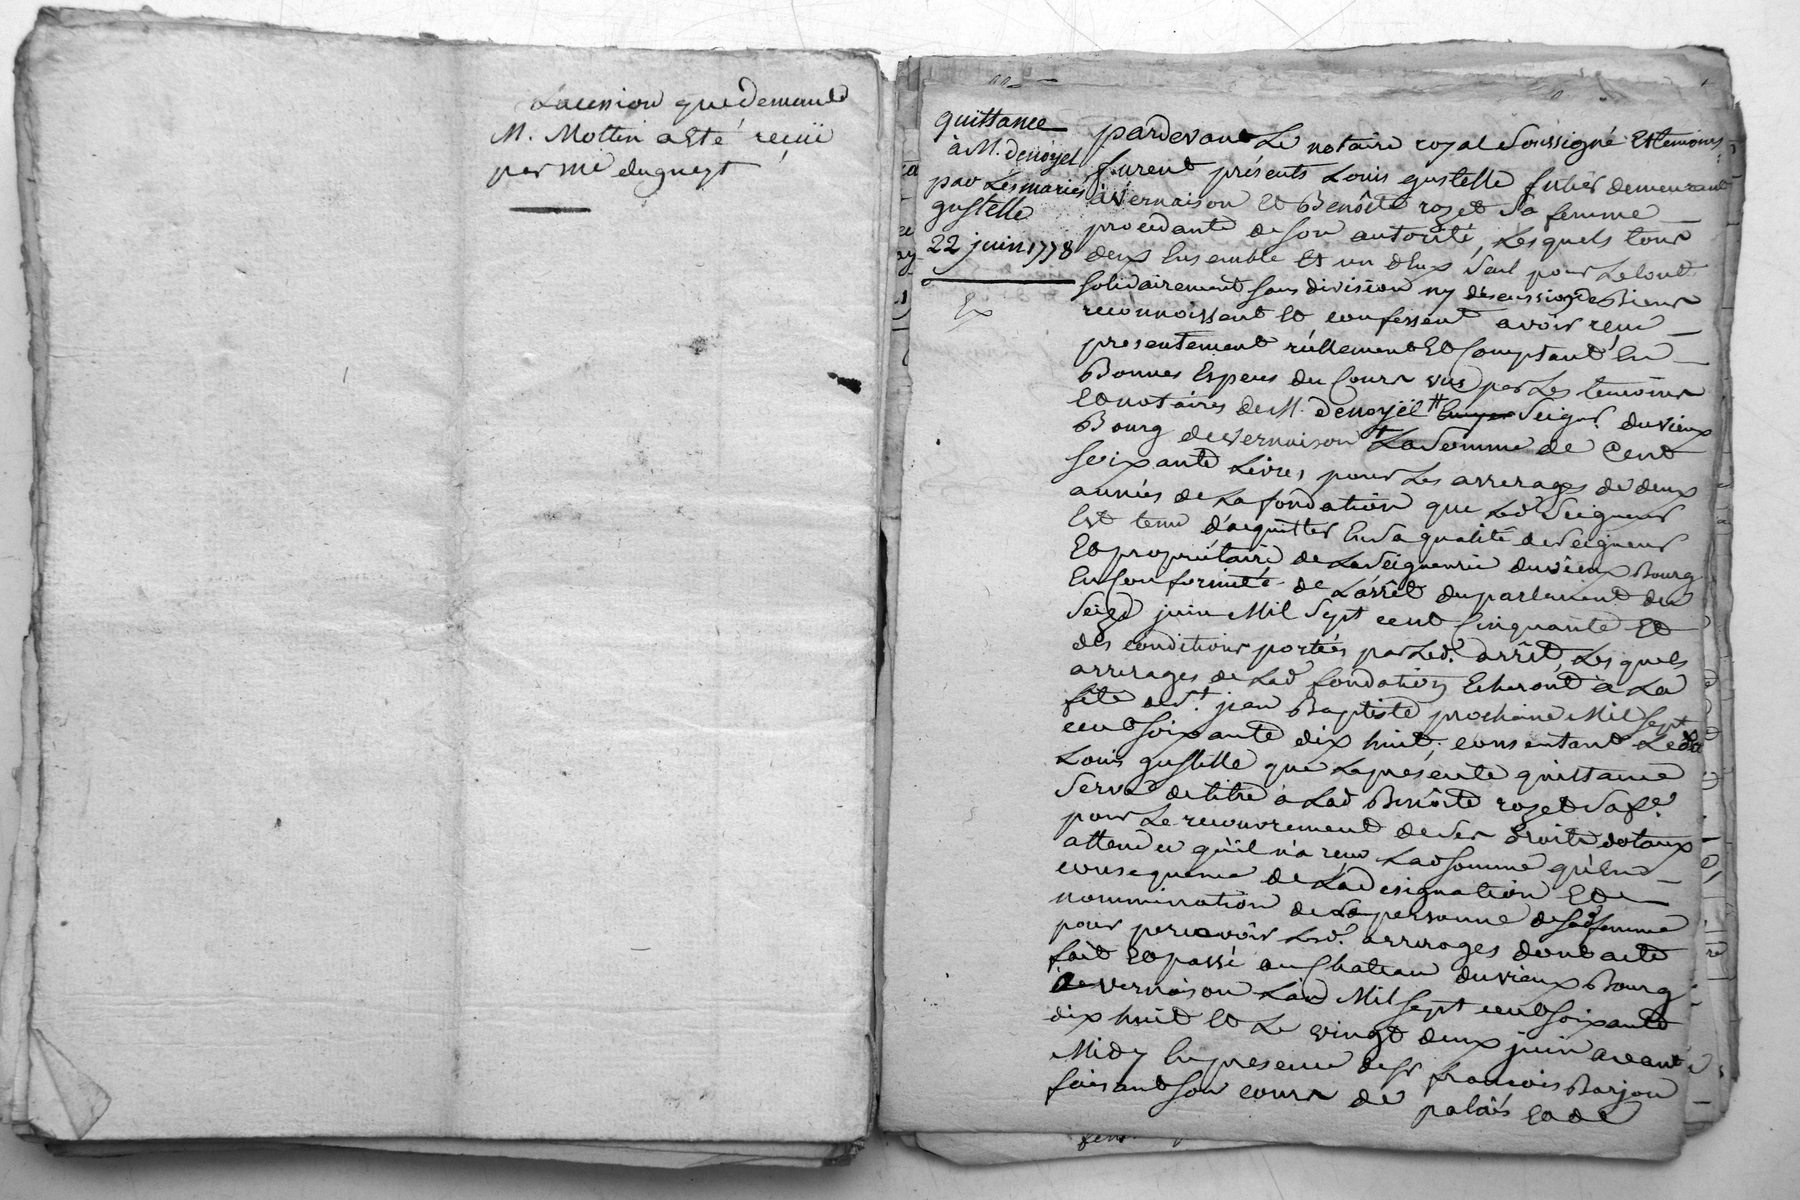 La cession que demande
M. Mottin a eté reçüe
par me duguest
quittance
à M. denoyel
par Les mariés
gustelle
22 juin 1778
Ex
pardevant Le notaire royal Soussigné Et temoins
furent présents Louis gustelle futier demeurant
à Vernaison Et Benoite rozet Sa femme
procedante de Son autorité, Lesquels tous
deux Ensemble Et un deux Seul pour Le tout
Solidairement Sans division ny discussion de Biens
reconnoissent Et confessent avoir reçu
presentement réellement Et Comptant En
Bonnes Especes du Cours vus par Les temoins
Et notaires de M. denoyel Seigr. du vieux
Bourg de vernaison La Somme de Cent
Soixante Livres, pour Les arrerages de deux
années de La fondation que Led Seigneur
Est tenu d'acquitter En Sa qualité de Seigneur
Et propriétaire de La Seigneurie du vieux Bourg
En Conformité de L'arrêt du parlement du
Seize juin Mil Sept cent Cinquante Et
des conditions portées par Led. arrêt, Les quels
arrerages de Lad fondation Echeront à La
fête de St. jean Baptiste prochaine Mil Sept
cent Soixante dix huit; consentant Led
Louis gustelle que La présente quittance
Serve de titre à Lad Benoite rozet Sa fe.
pour Le recouvrement de Ses Droits dotaux
attendu qu'il n'a reçu Lad Somme qu'En
consequence de La designation Et
nommination de La personne de Sad femme
pour percevoir Lesd. arrerages dont acte
fait Et passé au Chateau du vieux Bourg
de vernaison L'an Mil Sept cent Soixante
dix huit Et Le vingt deux juin avant
Midy En presence de Sr françois Barjon
faisant Son cours de palais Et de